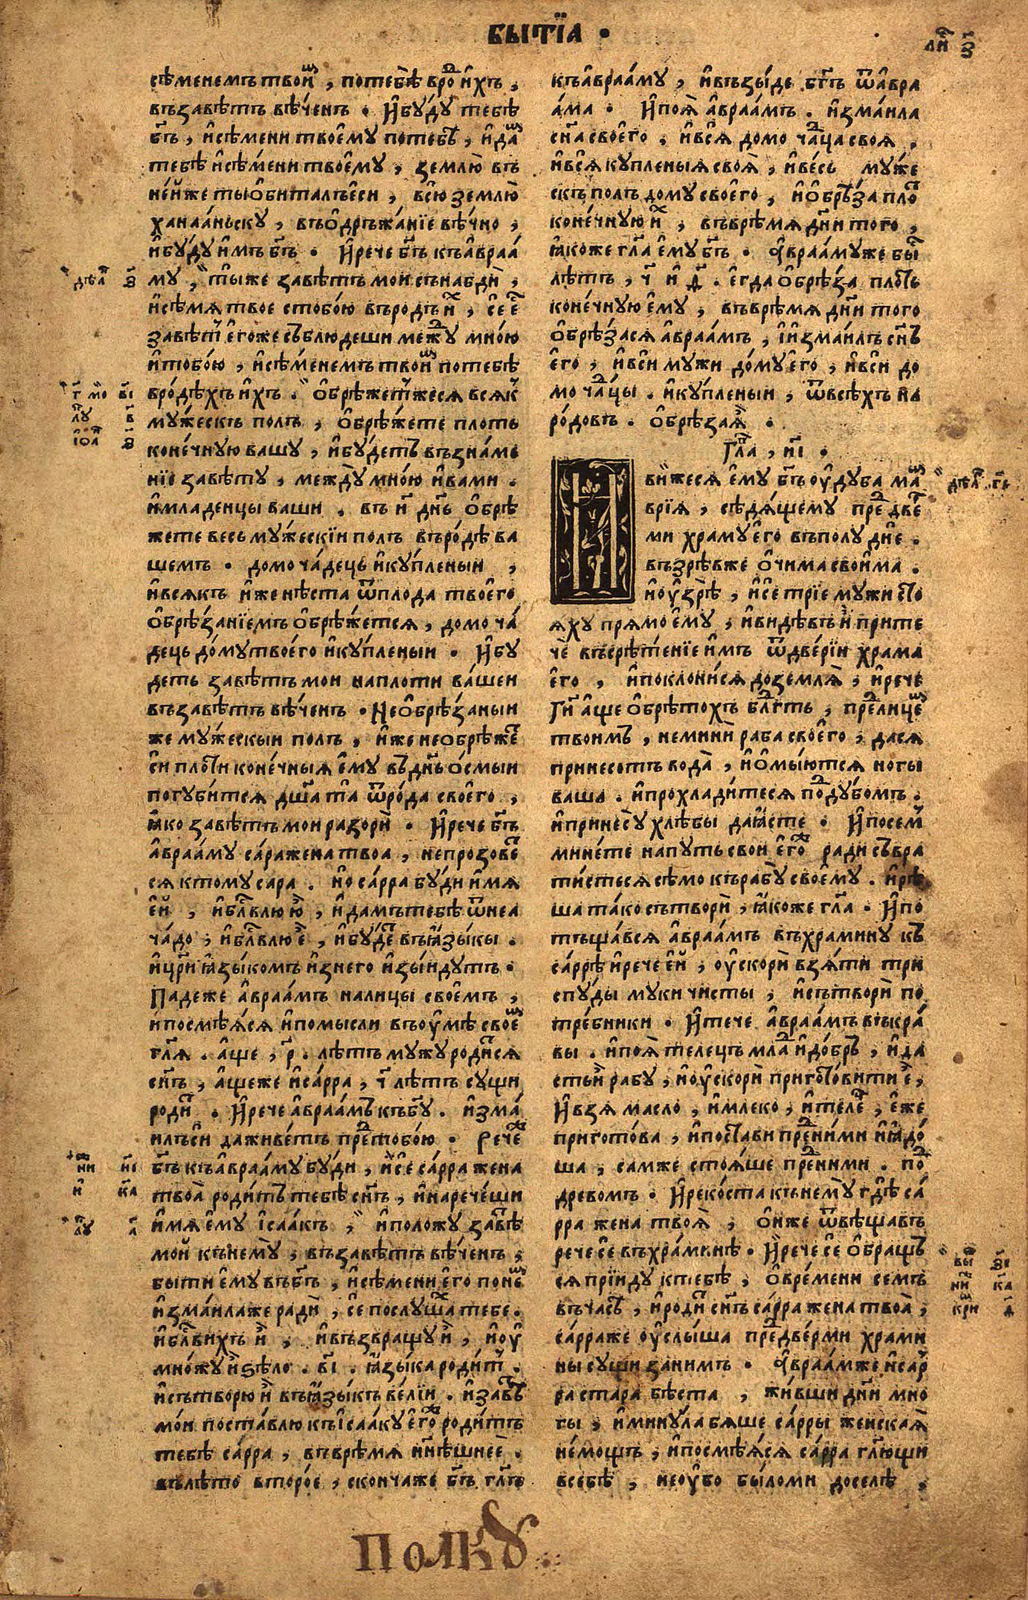 БЫТЇА .
лі҃ст з҃
сѣменемъ твоим̾ , потебѣ вро́ и́хъ ,
въ завѣтъ вѣченъ . И҆бу́ду тебѣ
бг҃ъ , и҆сѣмени твоемꙋ потебѣ , и҆да́м
тебѣ и҆сѣмени твоемꙋ , землю въ
не́йже ты ѡ҆биталъ є҆си , всю землю
ханаа́ньскꙋ , въ ѡ҆дръжа́нїе вѣчно ,
и҆бꙋдꙋ и҆мъ бг҃ъ . И҆рече бг҃ъ къ а҆враа́
мꙋ , ты́же завѣтъ мои сънабди ,
и҆сѣмѧ твое стобою въ роды и҆х , се є҆с
завѣт є҆гоже съблюдеши межꙋ мною
и҆тобо́ю , и҆сѣменемъ твои́м потебѣ
вро́дѣхъ и҆хъ . ѡ҆брѣжетжесѧ всѧк
мꙋ́жескъ полъ , ѡ҆брѣжете плоть
коне́чнꙋю вашꙋ , и҆бꙋдетъ възна́ме
нїе завѣтꙋ , междꙋ мною и҆вами .
и҆младенцы ваши . въ и҃ дн҃ь ѡ҆брѣ
жете весь мꙋжескїи полъ въро́дѣ ва
шемъ . домоча́децъ и҆кꙋпленыи ,
и҆всѧкъ и҆же нѣста ѿплода твоего
ѡ҆брѣзанїемъ ѡ҆брѣжетсѧ , домоча́
децъ до́мꙋ твоего и҆кꙋпленыи . И҆бꙋ
деть завѣтъ мои наплоти ва́шеи
въ завѣтъ вѣченъ . Неѡ҆брѣза́ныи
же мꙋ́жескыи полъ , и҆же не ѡ҆брѣже
си плоти коне́чныѧ є҆мꙋ въ дн҃ь ѻ҆смыи
погꙋбитсѧ дш҃а та ѿро́да своего ,
ꙗ҆ко завѣтъ мои разори . И҆рече бг҃ъ
а҆враамꙋ са́ра жена твоа , непрозове
сѧ ктомꙋ са́ра . но са́рра бꙋди и҆мѧ
є҆й , и҆бл҃влю ю҆ , и҆дамъ тебѣ ѿнеа
ча́до ; и҆бл҃влю є҆ , и҆бꙋде въ ꙗ҆зы́кы .
и҆цр҃и ꙗ҆зы́комъ и҆знего и҆зы́идꙋтъ .
Падеже а҆враа́мъ налицы своемъ ,
и҆посмѣѧсѧ и҆помысли въ ꙋ҆мѣ свое
гл҃ѧ . а҆ще , р҃ . лѣтъ мꙋжꙋ родисѧ
сн҃ъ , а҆щеже и҆са́рра , ч҃ лѣтъ сꙋщи
роди . И҆рече а҆враамъ къбг҃ꙋ . и҆зма́
илъ си даживе́тъ предтобою . Рече
бг҃ъ къ а҆враамꙋ бꙋди , и҆се са́рра жена
твоа̀ родитъ тебѣ сн҃ъ , и҆нарече́ши
и҆мѧ є҆мꙋ і҆саа́къ , и҆положꙋ завѣ
мой кънемꙋ , въ завѣтъ вѣченъ ,
быти є҆мꙋ въ бг҃ъ , и҆сѣмени є҆го поне
и҆зма́илаже ради , се послꙋша тебе .
и҆бл҃вихъ и҆ , и҆възвращꙋ и҆ , и҆ꙋ҆
мно́жꙋ и҆ ѕѣло . в҃і . ꙗ҆зыка родит .
и҆сътворю и҆ въ ꙗ҆зыкъ ве́лїи . и҆заве
мои поставлю къ і҆саакꙋ є҆го родитъ
тебѣ са́рра , въ врѣмѧ ны́нѣшнее .
въ лѣто второе , скончаже бг҃ъ гл҃ѧ
къ а҆враа́мꙋ , и҆възы́де бг҃ъ ѿ а҆вра
а́ма . И҆поѧ̀ а҆враа́мъ . и҆зма́ила
сн҃а своего . и҆всѧ̀ домоча́дца своѧ .
и҆всѧ кꙋпленыѧ своѧ̀ , и҆ве́сь мꙋже
скъ полъ домꙋ своего , и҆ѡ҆брѣза пло
коне́чнꙋю и҆х , въ врѣмѧ дн҃и того ,
ꙗ҆коже гл҃а є҆мꙋ бг҃ъ . а҆враамꙋже бы
лѣтъ , ч҃ и҆ д҃ . є҆гда ѡ҆брѣза плоть
коне́чнꙋю є҆мꙋ , въ врѣмѧ дн҃и того
ѡ҆брѣзасѧ а҆враа́мъ , и҆и҆зма́илъ сн҃ъ
є҆го , и҆вси мꙋжи до́мꙋ є҆го , и҆вси до
моча́дцы . и҆кꙋпленыи , ѿвсѣхъ на
ро́довъ . ѡ҆брѣзаѧ .
Гл҃а , и҃і .
Ꙗви́жесѧ є҆мꙋ бг҃ъ ꙋ҆ дꙋба мам
врїѧ , сѣдѧ́щемꙋ пред две
ми храмꙋ є҆го въ полꙋдне .
възрѣвже ѻ҆чима своима .
и҆ꙋ҆зрѣ , и҆се трїе мꙋжи сто
ѧхꙋ прѧ́мо є҆мꙋ , и҆видѣвъ и҆ прите
чѐ въ срѣтенїе и҆мъ ѿдве́рїи храма
є҆го , и҆поклонисѧ доземлѧ̀ ; и҆рече
Гн҃ а҆ще ѡ҆брѣтохъ бл҃гть , пред лице
твоимъ , немини раба своего ; дасѧ
принесетъ вода , и҆ѡ҆мы́ютсѧ ногы
ваша . и҆прохладитесѧ под дꙋбомъ .
и҆принесꙋ хлѣбы даꙗ҆сте . И҆посем
минете напꙋть свои є҆го ради съвра
ти́стесѧ сѣмо къ рабꙋ своемꙋ . и҆рѣ
ша та́ко сътвори , ꙗ҆коже гл҃а . И҆по
тъща́всѧ а҆враамъ въ храминꙋ къ
са́ррѣ и҆рече є҆й ; ꙋ҆скори взѧ́ти три
спꙋды мꙋки чисты ; и҆сътвори по
тре́бники . И҆тече а҆враа́мъ въкра́
вы . и҆поѧ телецъ млад и҆до́бръ , и҆да
стьи рабꙋ , и҆ꙋ҆скори приготовити є҆ ,
И҆взѧ масло , и҆млеко , и҆теле , є҆же
пригото́ва , и҆постави пред ними и҆ꙗ҆до́
ша , самже стоѧ́ше пред ними . под
древомъ . И҆реко́ста къ немꙋ где са́
рра жена твоѧ̀ , ѻ҆нже ѿвѣщавъ
рече се въ хра́минѣ . И҆рече се ѡ҆бращъ
сѧ прїидꙋ ктебѣ , ѡ҆ времени семъ
въ часъ , и҆роди сн҃ъ са́рра жена твоа̀ ;
са́рраже ꙋ҆слы́ша пред дверми храми
ны сꙋщи занимъ . а҆враамже и҆са́р
ра стара бѣста , жи́вши дн҃и мно
гы ; и҆минꙋла бѧше са́рры женскаѧ
не́мощъ ; и҆посмѣѧсѧ са́рра гл҃ющи
всебѣ , неꙋ҆бо было ми доселѣ ,
ПолкꙊ